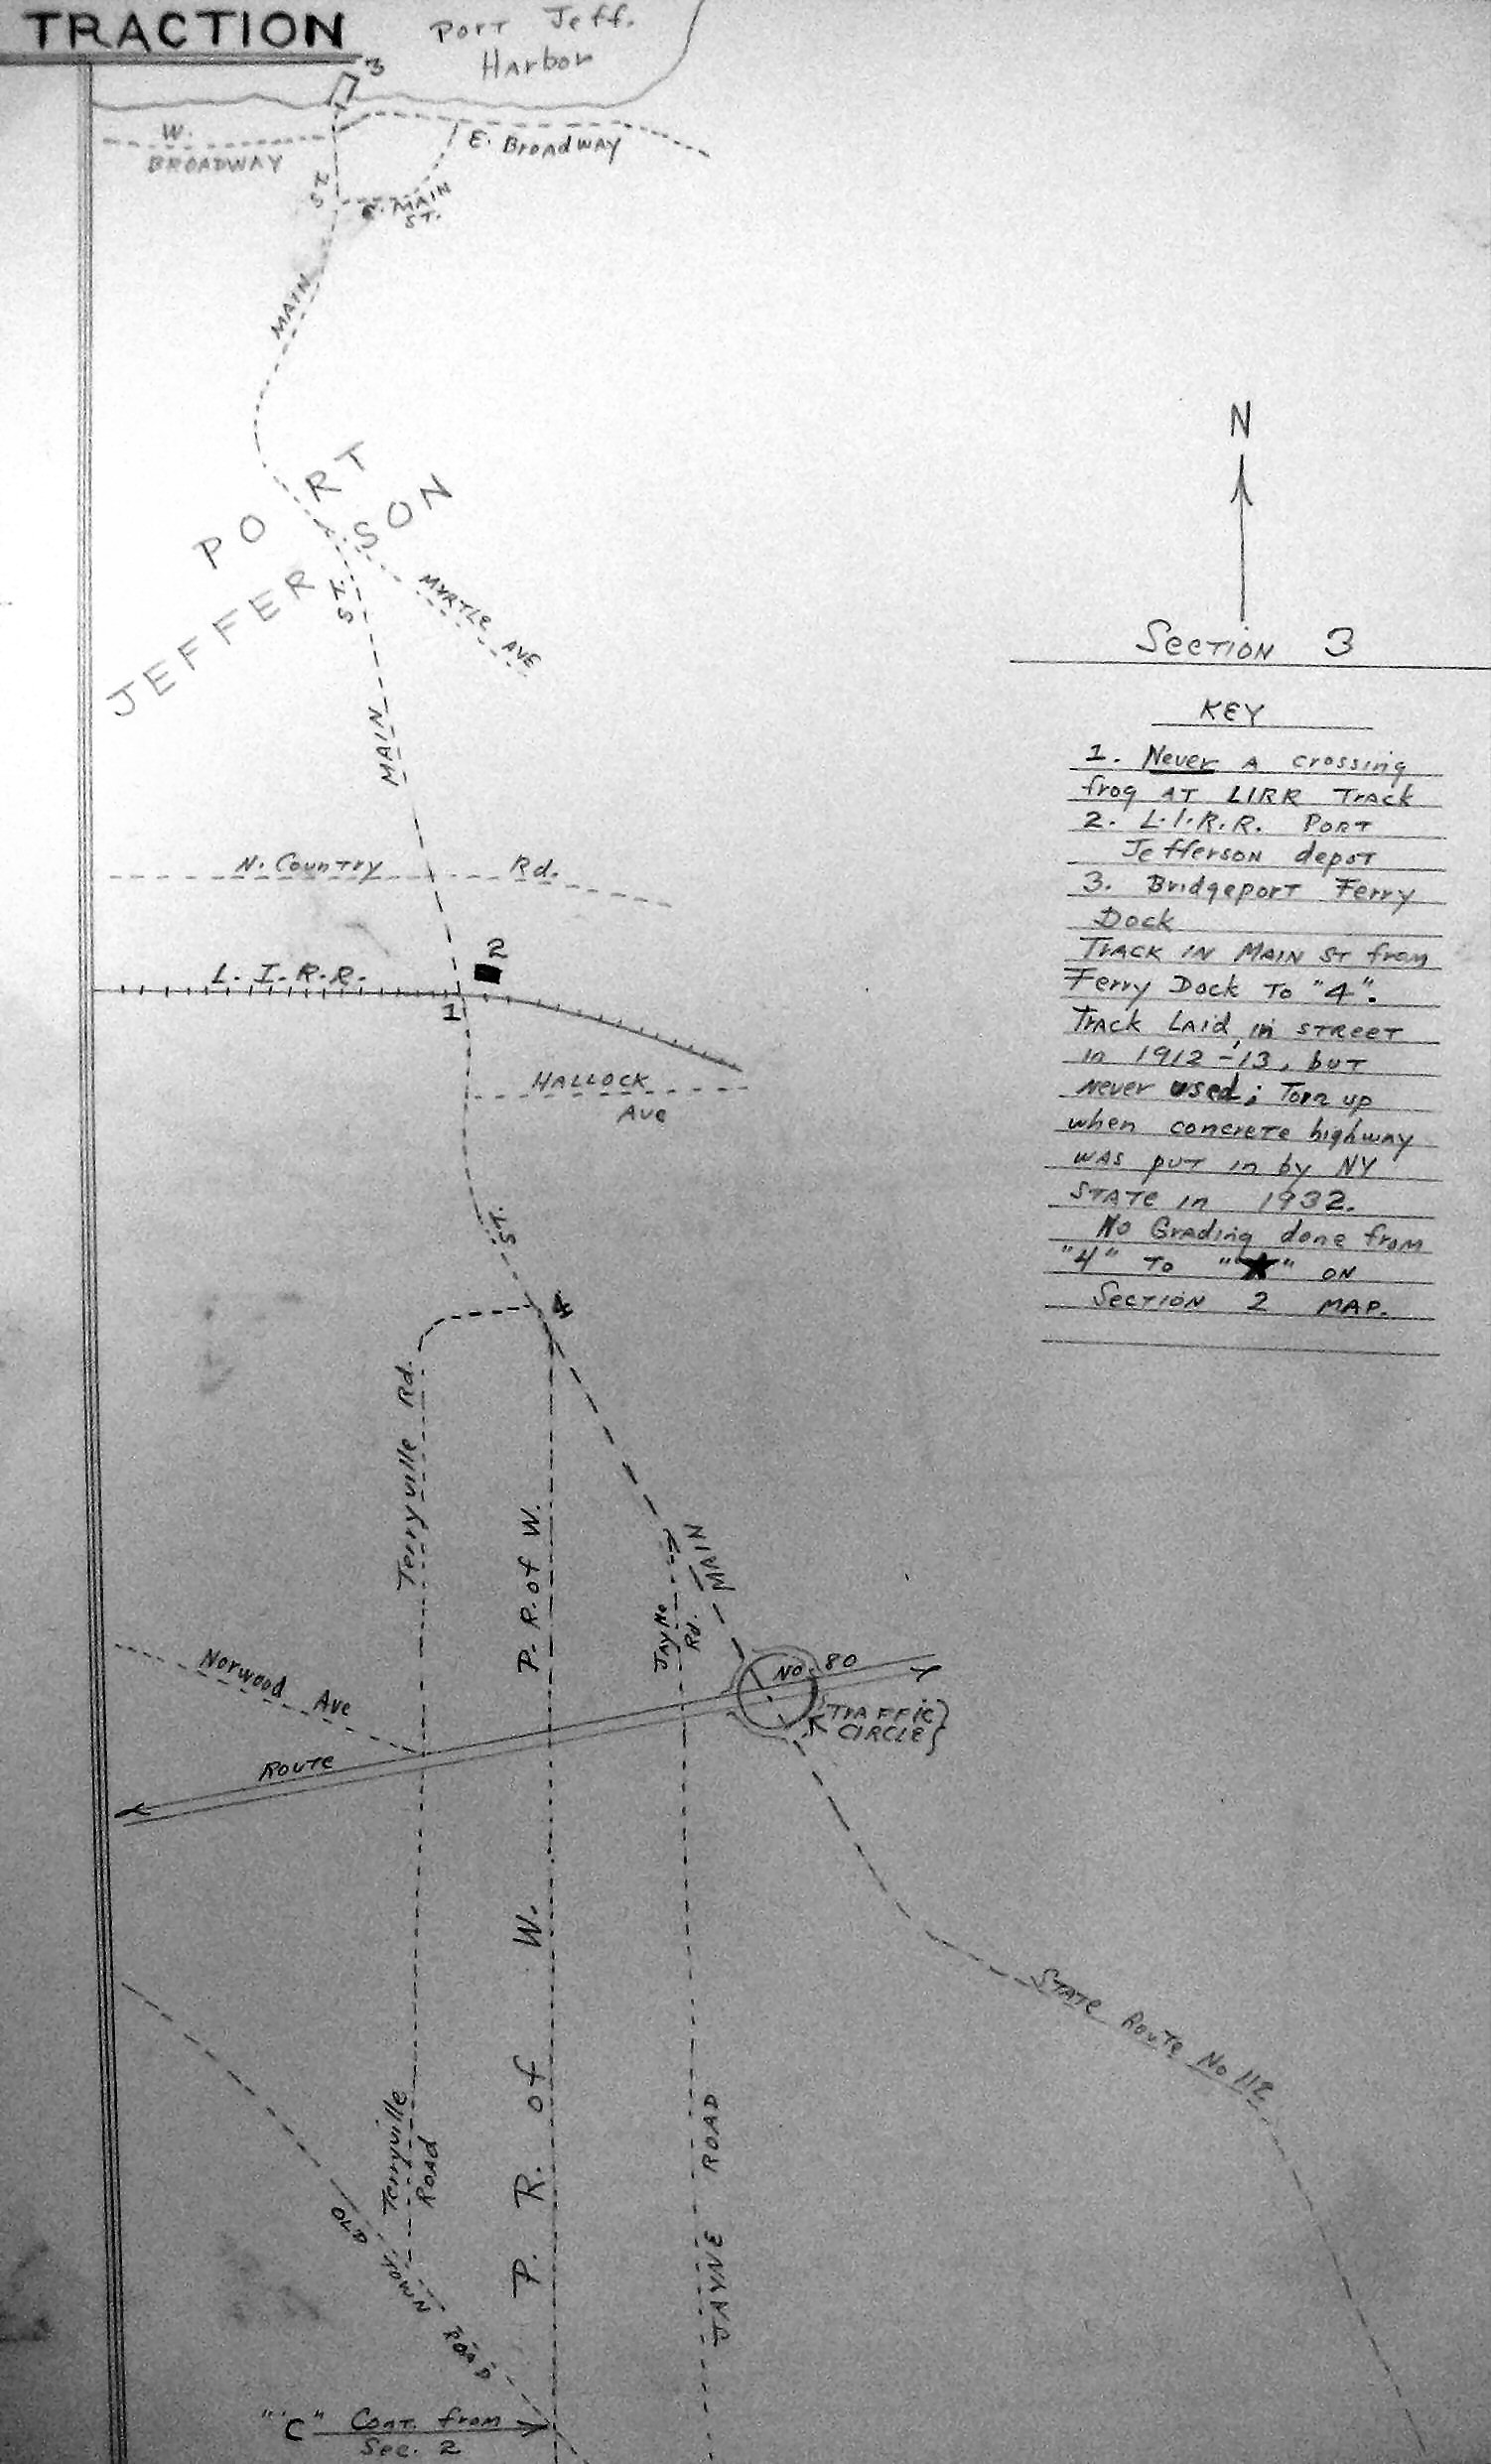 TRACTION
Port Jeff.
Harbor
3
W.
BROADWAY
E. BroadWAY
ST.
E. MAIN
ST.
MAIN
PORT
JEFFERSON
ST.
MYRTLE AVE
MAIN
N. Country Rd.
2
L. I. R.R.
1
HALLOCK
Ave
ST.
4
Terryville Rd.
P. R. of W.
Jayne
Rd.
MAIN
Norwood Ave
ROUTE NO. 80
{TRAFFIC}
CIRCLE
STATE ROUTE No 112
P. R. of W.
Terryville
ROAD
JAYNE ROAD
OLD TOWN ROAD
"C" Cont. from
Sec. 2
N
SECTION 3
KEY
1. Never A crossing
frog AT LIRR Track
2. L.I.R.R. PORT
Jefferson depot
3. Bridgeport Ferry
Dock
TRACK IN MAIN ST from
Ferry Dock To "4".
Track LAid in STREET
in 1912-'13, but
Never used; Torn up
when concrete highway
WAS put in by NY
STATE in 1932.
No Grading done from
"4" To "★" ON
SECTION 2 MAP.